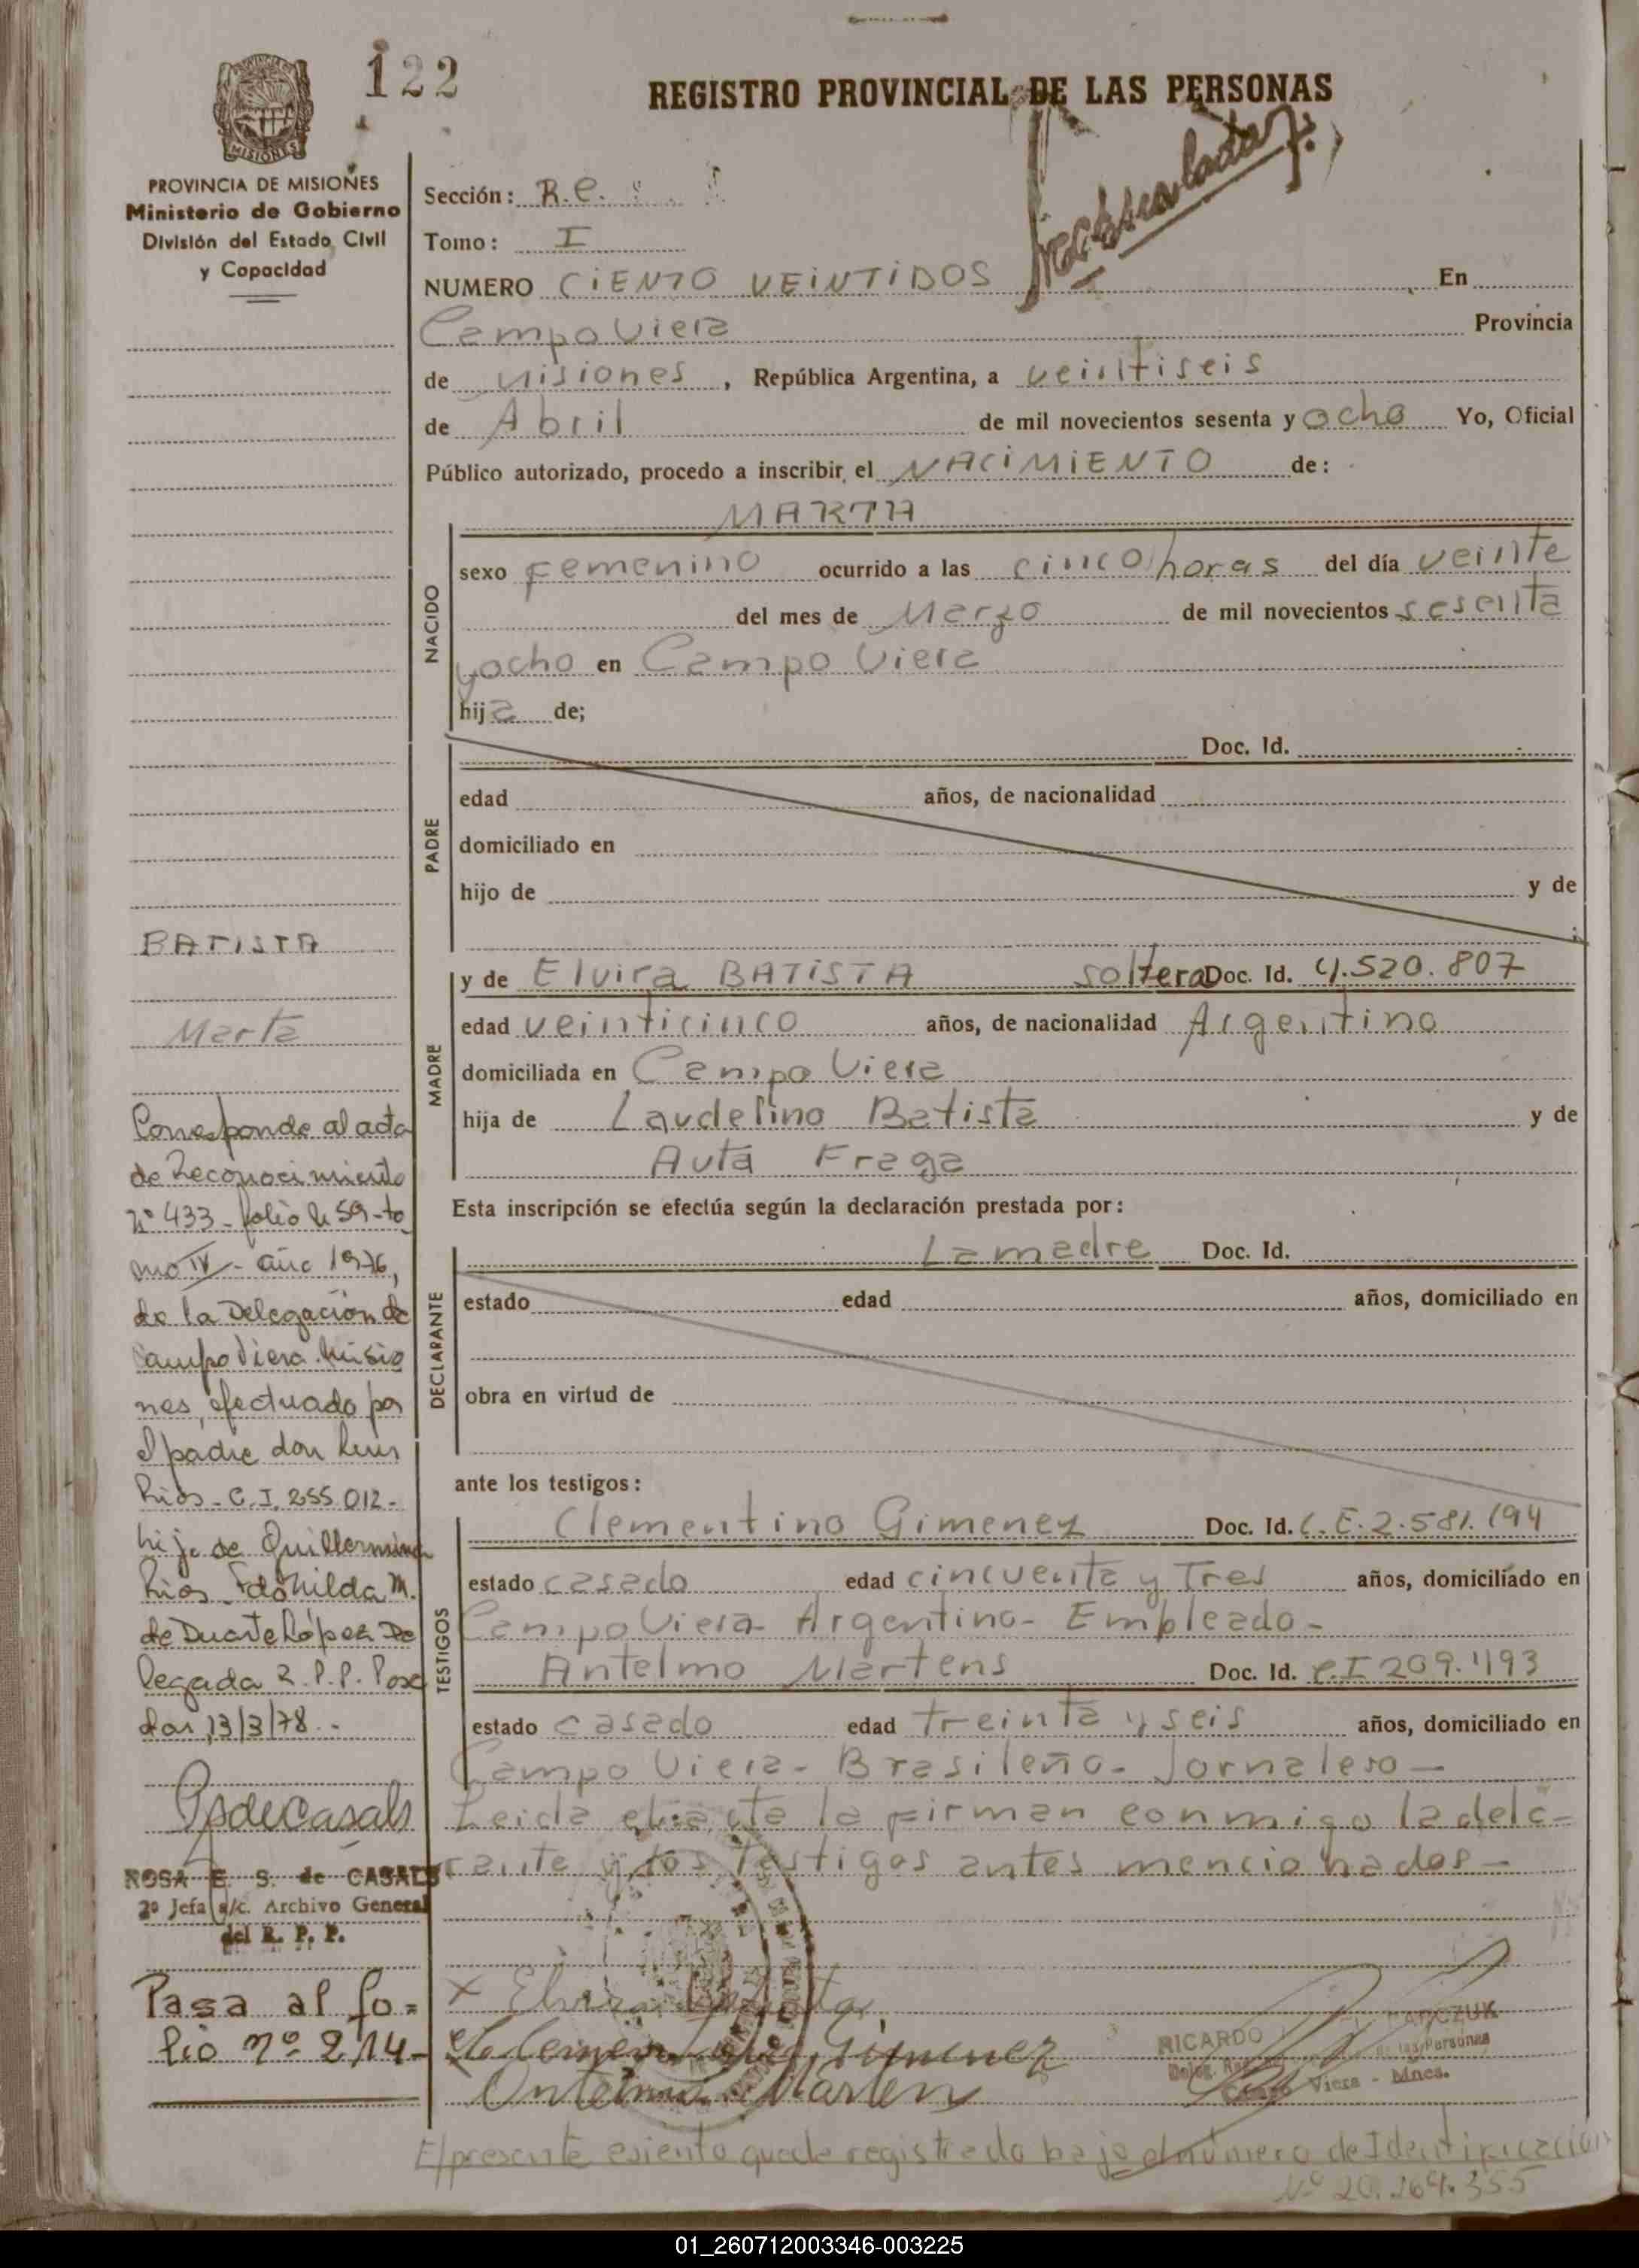 122
REGISTRO PROVINCIAL DE LAS PERSONAS
MISIONES
PROVINCIA DE MISIONES
Ministerio de Gobierno
División del Estado Civil
y Capacidad
Sección: R.C.
Tomo: I
NUMERO CIENTO VEINTIDOS En
Campo Viera Provincia
de Misiones, República Argentina, a veintiseis
de Abril de mil novecientos sesenta y ocho Yo, Oficial
Público autorizado, procedo a inscribir el NACIMIENTO de:
MARTA
NACIDO
sexo Femenino ocurrido a las cinco horas del día veinte
del mes de Marzo de mil novecientos sesenta
y ocho en Campo Viera
hija de;
PADRE
Doc. Id.
edad años, de nacionalidad
domiciliado en
hijo de y de
MADRE
y de Elvira BATISTA soltera Doc. Id. 4.520.807
edad veinticinco años, de nacionalidad Argentino
domiciliada en Campo Viera
hija de Laudelino Batista y de
Auta Fraga
Esta inscripción se efectúa según la declaración prestada por:
DECLARANTE
La madre Doc. Id.
estado edad años, domiciliado en
obra en virtud de
ante los testigos:
TESTIGOS
Clementino Gimenez Doc. Id. C.E. 2.581.194
estado casado edad cincuenta y Tres años, domiciliado en
Campo Viera Argentino- Empleado-
Antelmo Martens Doc. Id. C.I 209.493
estado casado edad treinta y seis años, domiciliado en
Campo Viera- Brasileño- Jornalero-
Leida el acta la firman conmigo la decla-
rante y los testigos antes mencionados-
x Elvira Batista
Clementino Gimenez
Antelmo Marten
RICARDO
de las Personas
Campo Viera - Mnes.
El presente asiento queda registrado bajo el número de Identificación
Nº 20.264.355
BATISTA
Marta
Corresponde al acta
de Reconocimiento
Nº 433- folio 59- to
mo IV- año 1976,
de la Delegación de
Campo Viera. Misio
nes, efectuado por
el padre don Luis
Rios- C.I. 255.012-
hijo de Guillermina
Rios. M.
de Duarte López De
legada R.P.P. Posa
das, 13/3/78.-
ROSA E. S. de CASALS
2º Jefa a/c. Archivo General
del R. P. P.
Pasa al fo=
lio nº 214-
01_260712003346-003225